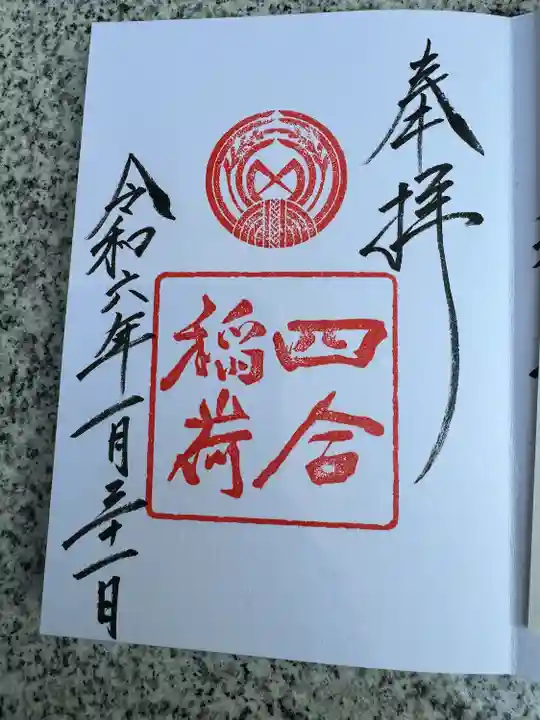 奉拝
四合
稲荷
令和六年一月三十一日